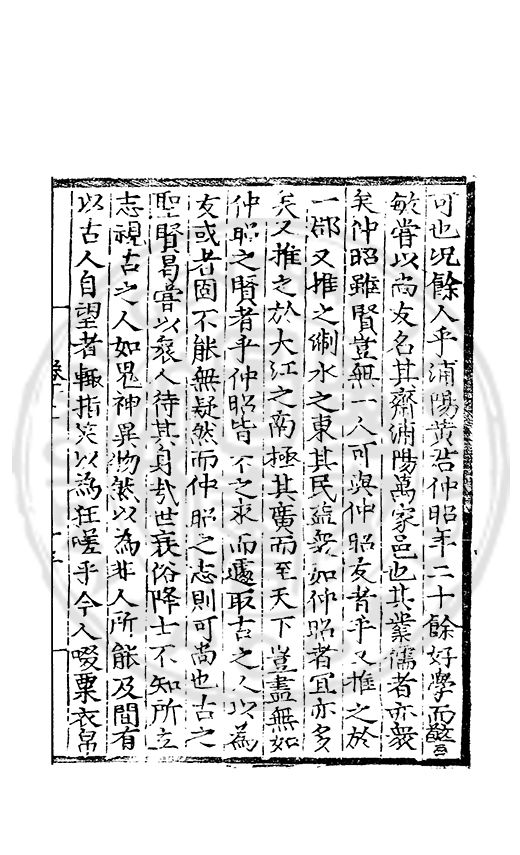 可也況餘人乎浦陽黃君仲昭年二十餘好學而警
敏嘗以尚友名其齋浦陽萬家邑也其業儒者亦衆
矣仲昭雖賢豈無一人可與仲昭友者乎又推之於
一郡又推之淛水之東其民益衆如仲昭者宜亦多
矣又推之於大江之南極其廣而至天下豈盡無如
仲昭之賢者乎仲昭皆不之求而遽取古之人以為
友或者固不能無疑然而仲昭之志則可尚也古之
聖賢曷嘗以衆人待其身哉世衰俗降士不知所立
志視古之人如鬼神異物然以為非人所能及間有
以古人自望者輒指笑以為狂嗟乎今人啜粟衣帛